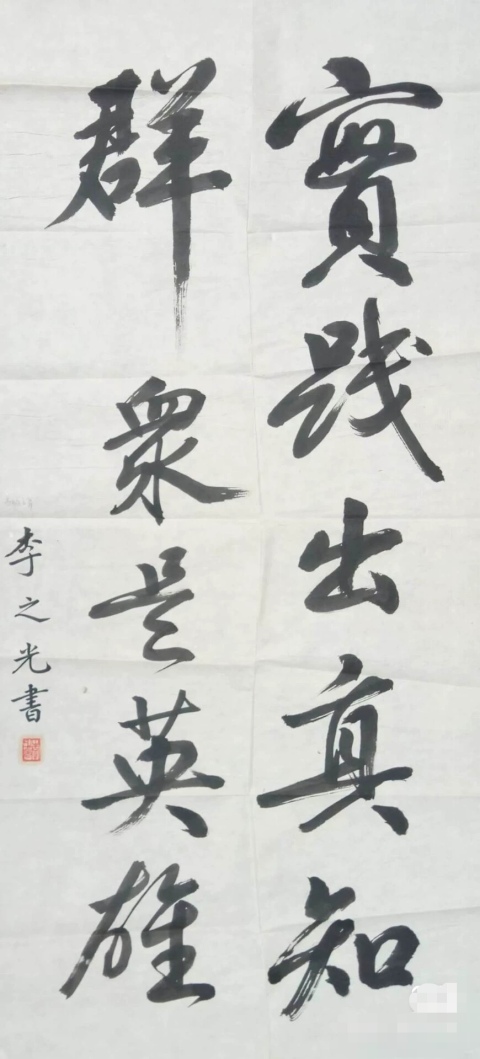 實践出真知
群衆是英雄
李之光書